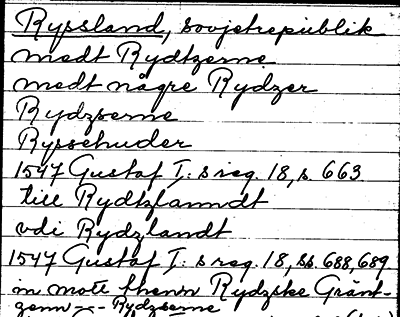 Ryssland, sovjetrepublik
medt Rydtzerne
medt någre Rydzer
Rydzserne
Ryssehuder
1547 Gustaf I: s reg. 18, s. 663
till Rydtzlanndt
vdi Rydzlandt
1547 Gustaf I: s reg. 18, ss. 688, 689
in mott thenn Rydzske Gränt-
zenn Rydzserne